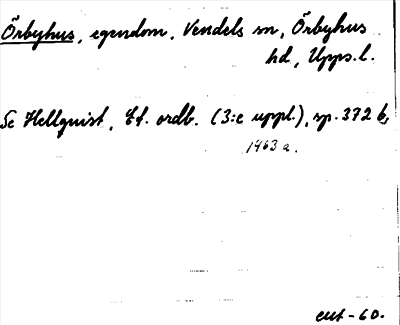 Örbyhus, egendom, Vendels sn, Örbyhus
hd, Upps.l.
Se Hellquist, Et. ordb. (3:e uppl.), sp. 372 b,
1463 a.
eut-60.